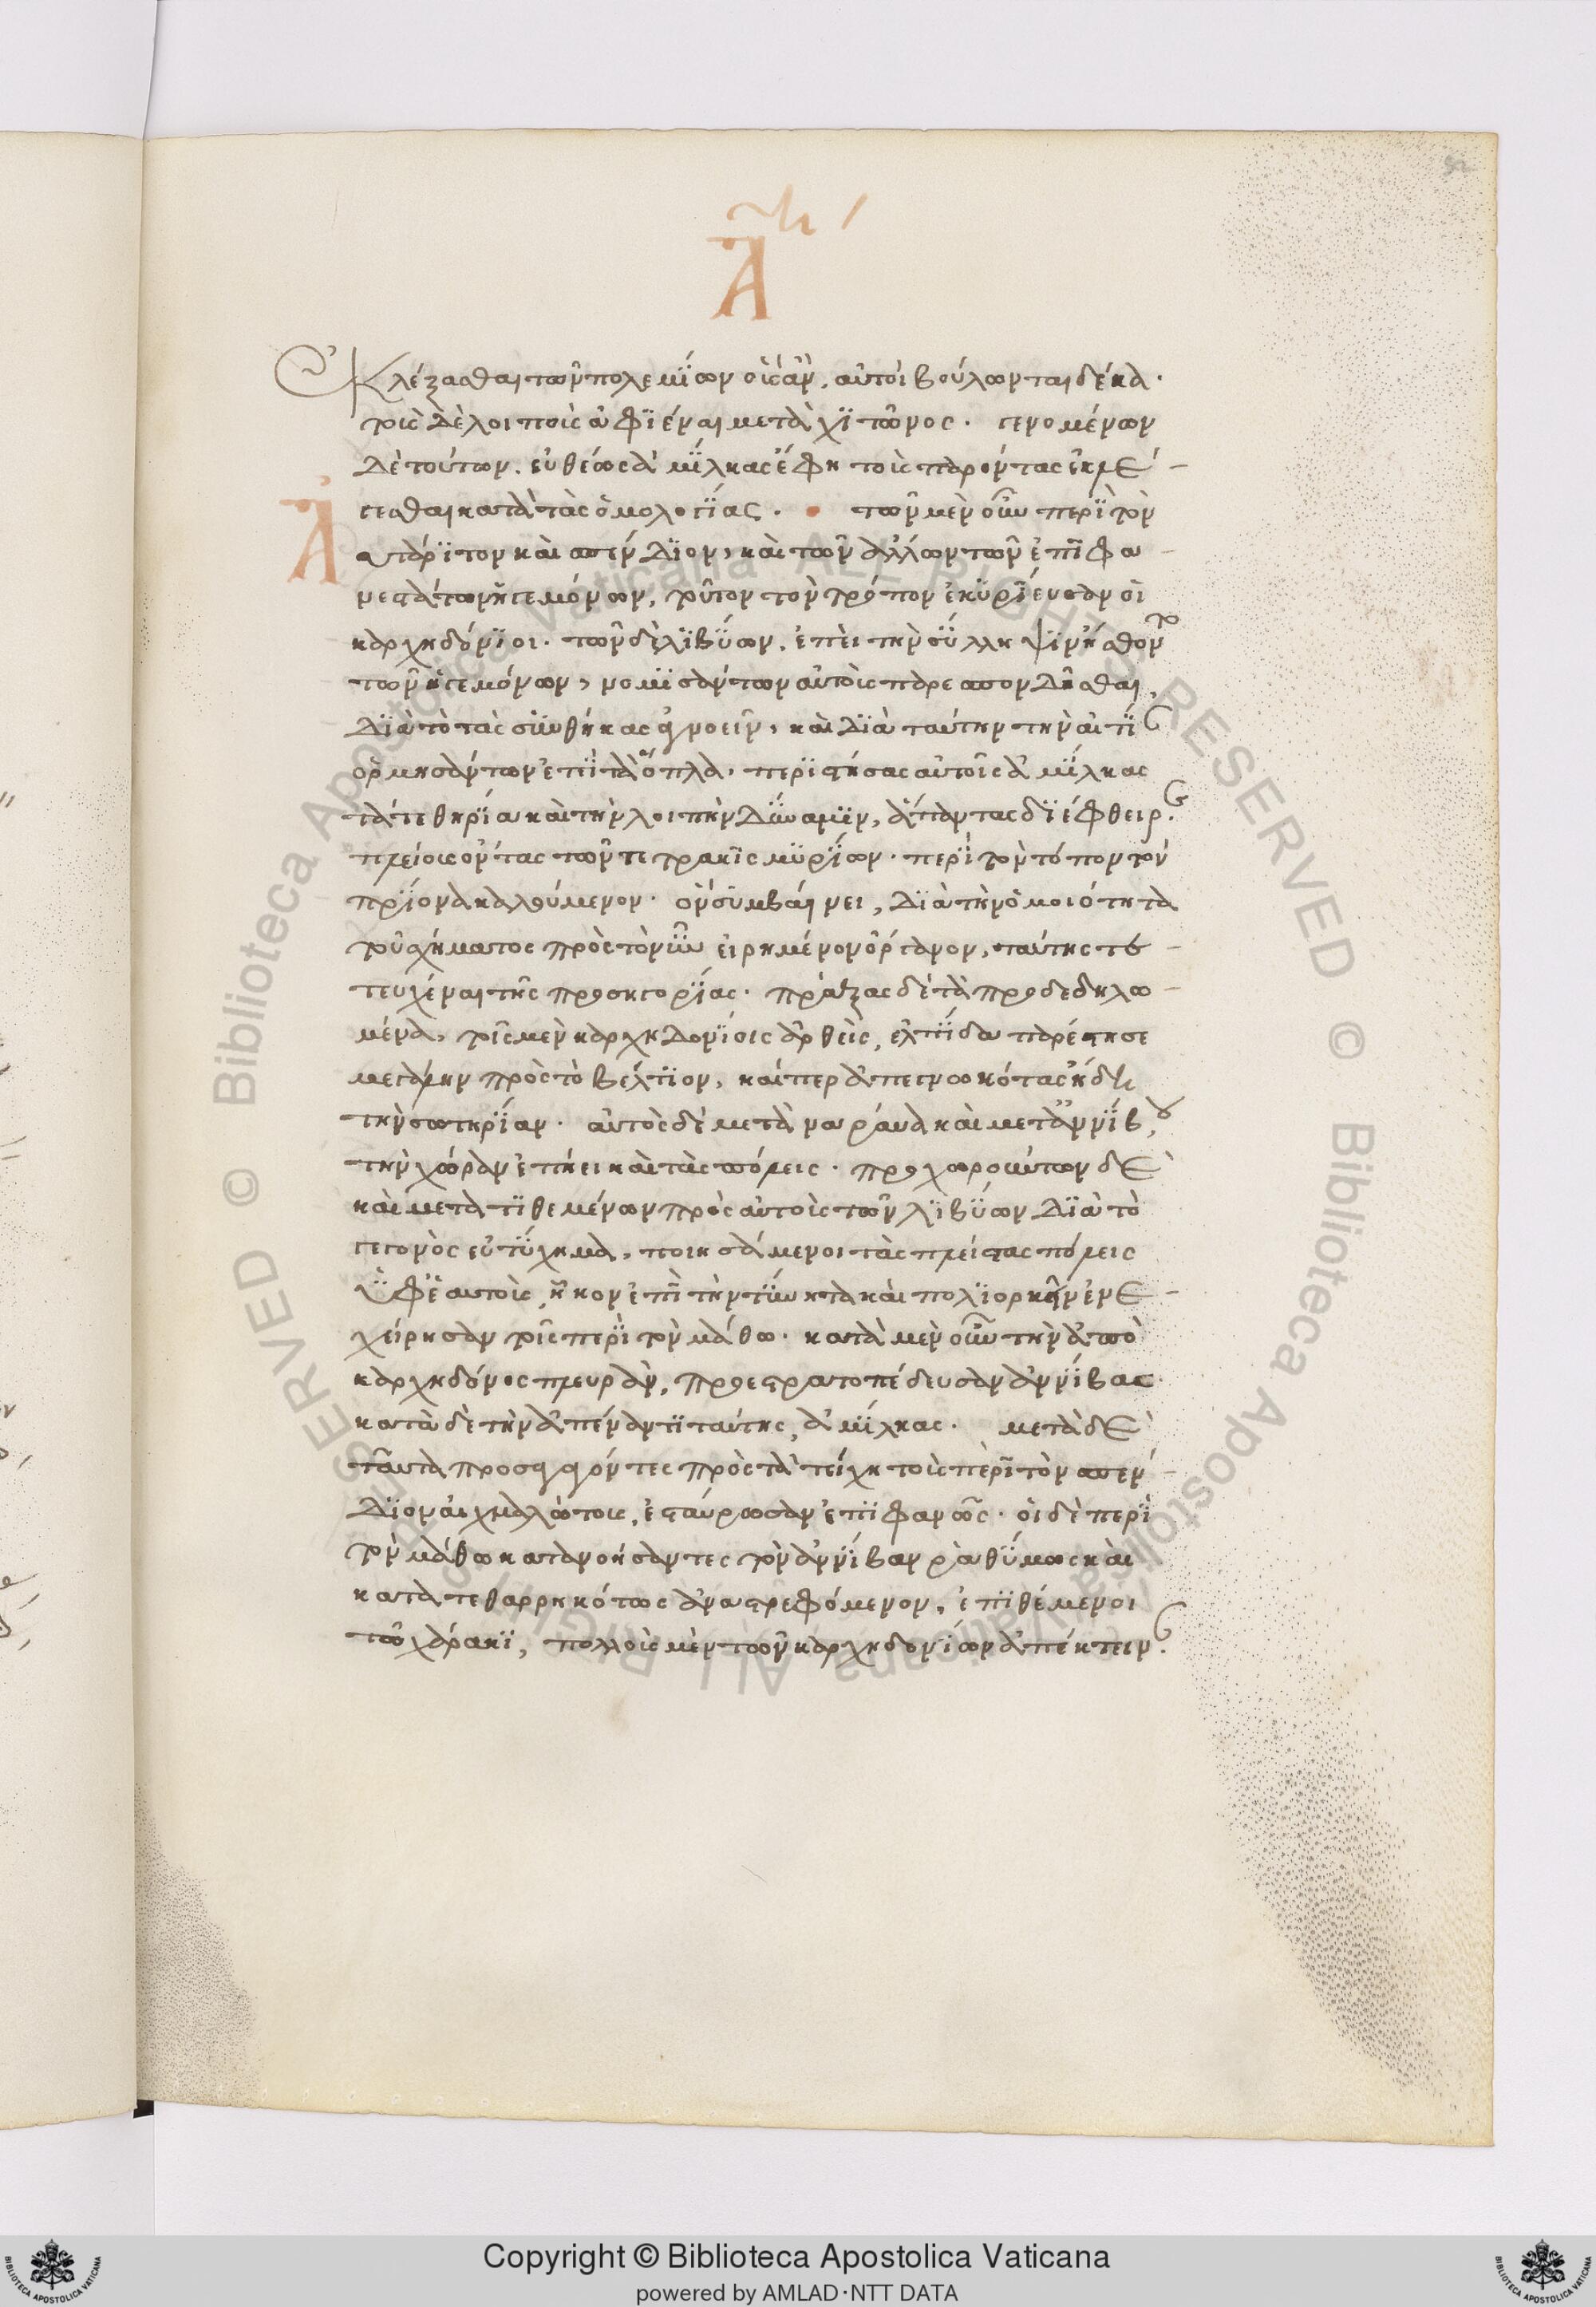 Ἀπη /
Α
ἐκλέξασθαι τῶν πολεμΐων οὓς ἂν, αὐτοὶ βούλωνται δέκα·
τοὺς δὲ λοιποὺς ἀφϊέναι μετὰ χϊτῶνος. γενομένων
δὲ τούτων. εὐθέως ἀμΐλκας ἔφη τοὺς παρόντας ἐκλέ-
γεσθαι κατὰ τὰς ὁμολογΐας. τῶν μὲν οὖν περῒ τὸν
αυτάρϊτον καὶ σπένδϊον, καὶ τῶν ἄλλων τῶν ἐπϊφα-
νεστάτων ἡγεμόνων, τοῦτον τὸν τρόπον ἐκϋρΐευσαν οἱ
καρχηδόνϊοι. τῶν δὲ λϊβΰων, ἐπεὶ τὴν σΰλληψϊν ᾔσθοντο
τῶν ἡγεμόνων, νομϊσάντων αὐτοὺς παρεσπονδῆσθαι,
δϊὰ τὸ τὰς συνθήκας ἀγνοεῖν, καὶ δϊὰ ταύτην τὴν αἰτΐαν
ὁρμησάντων ἐπῒ τὰ ὅπλα, περϊστήσας αὐτοῖς ἀμΐλκας
τά τε θηρΐα καὶ τὴν λοιπὴν δΰναμϊν, ἅπαντας δϊέφθειρε.
πλείους ὄντας τῶν τετρακϊς μϋρΐων. περῒ τὸν τόπον τὸν
πρΐονα καλούμενον. ὃν συμβαίνει, δϊὰ τὴν ὁμοιότητα
τοῦ σχήματος πρὸς τὸ νῦν εἰρημένον ὄργανον, ταύτης τε-
τευχέναι τῆς προσηγορΐας. πράξας δὲ τὰ προδεδηλω-
μένα, τοῖς μὲν καρχηδονΐοις ἀρθεὶς, ἐλπΐδα παρέστησε
μεγάλην πρὸς τὸ βέλτϊον, καίπερ ἀπεγνωκότας ἤδη
τὴν σωτηρΐαν. αὐτὸς δὲ μετὰ ναράυα καὶ μετ ἀννΐβου,
τὴν χώραν ἐπήει καὶ τὰς πόλεις. προχωρούντων δὲ
καὶ μετατϊθεμένων πρὸς αὐτοὺς τῶν λϊβΰων δϊὰ τὸ
γεγονὸς εὐτΰχημα, ποιησάμενοι τὰς πλείστας πόλεις
ὑφ ἑαυτοὺς, ἧκον ἐπῒ τὴν τΰνητα καὶ πολϊορκεῖν ἐνε-
χείρησαν τοὺς περῒ τὸν μάθω. κατὰ μὲν οὖν τὴν ἀπὸ
καρχηδόνος πλευρὰν, προεστρατοπέδευσαν ἀννΐβας
κατὰ δὲ τὴν ἀπέναντϊ ταύτης, ἀμΐλκας. μετὰ δὲ
ταῦτα προσαγαγόντες πρὸς τὰ τείχη τοὺς περῒ τὸν σπέν-
δϊον αἰχμαλώτους, ἐσταύρωσαν ἐπϊφανῶς. οἱ δὲ περῒ
τὸν μάθω κατανοήσαντες τὸν ἀννΐβαν ῥαθΰμως καὶ
κατατεθαρρηκότως ἀναστρεφόμενον, ἐπϊθέμενοι
τῶ χάρακϊ, πολλοὺς μὲν τῶν καρχηδονΐων ἀπέκτειναν.
Copyright © Biblioteca Apostolica Vaticana
powered by AMLAD·NTT DATA